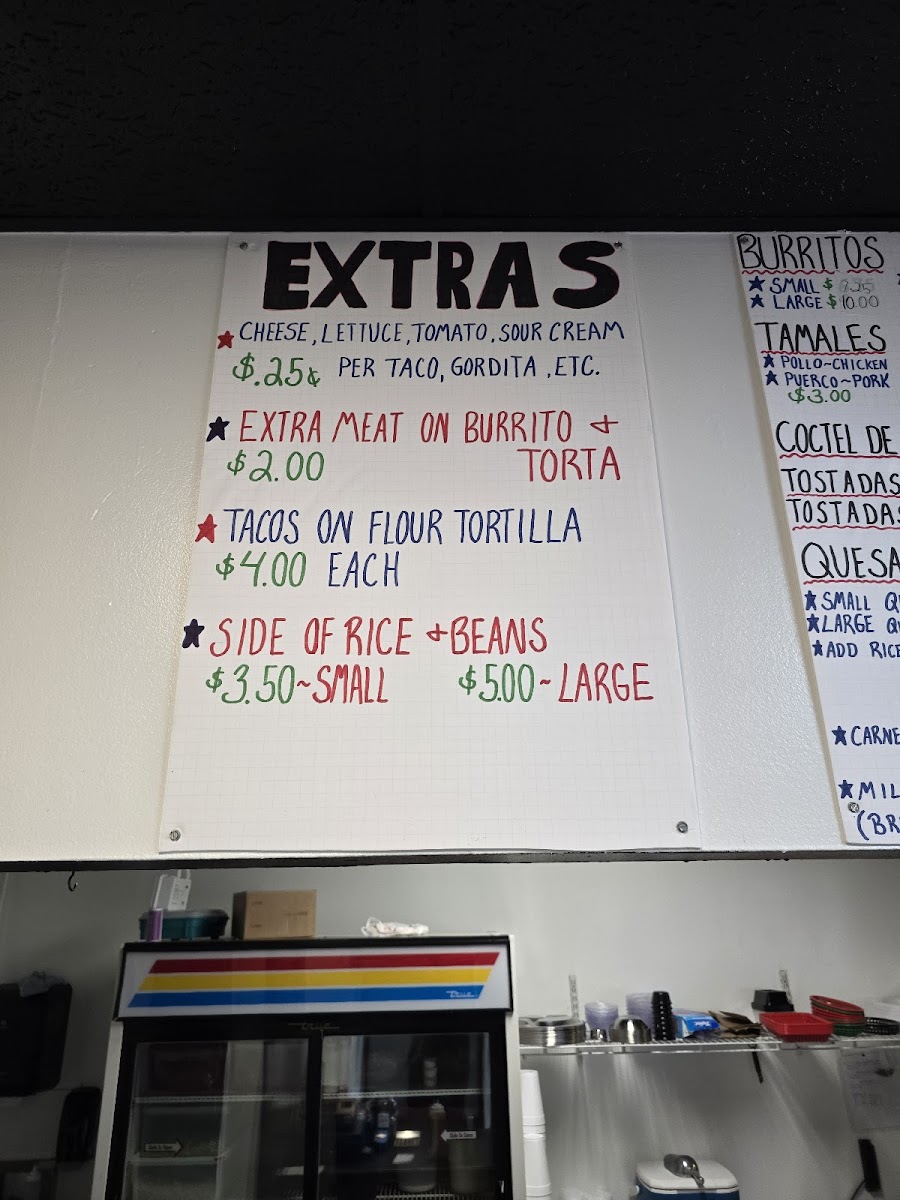 EXTRAS
CHEESE, LETTUCE, TOMATO, SOUR CREAM
$.25¢ PER TACO, GORDITA, ETC.
EXTRA MEAT ON BURRITO &
$2.00 TORTA
TACOS ON FLOUR TORTILLA
$4.00 EACH
SIDE OF RICE & BEANS
$3.50~SMALL $5.00~LARGE
BURRITOS
SMALL $
LARGE $10.00
TAMALES
POLLO~CHICKEN
PUERCO~PORK
$3.00
COCTEL DE
TOSTADAS
TOSTADAS
QUESA
SMALL Q
LARGE Q
ADD RICE
CARNE
MIL
(BR
True